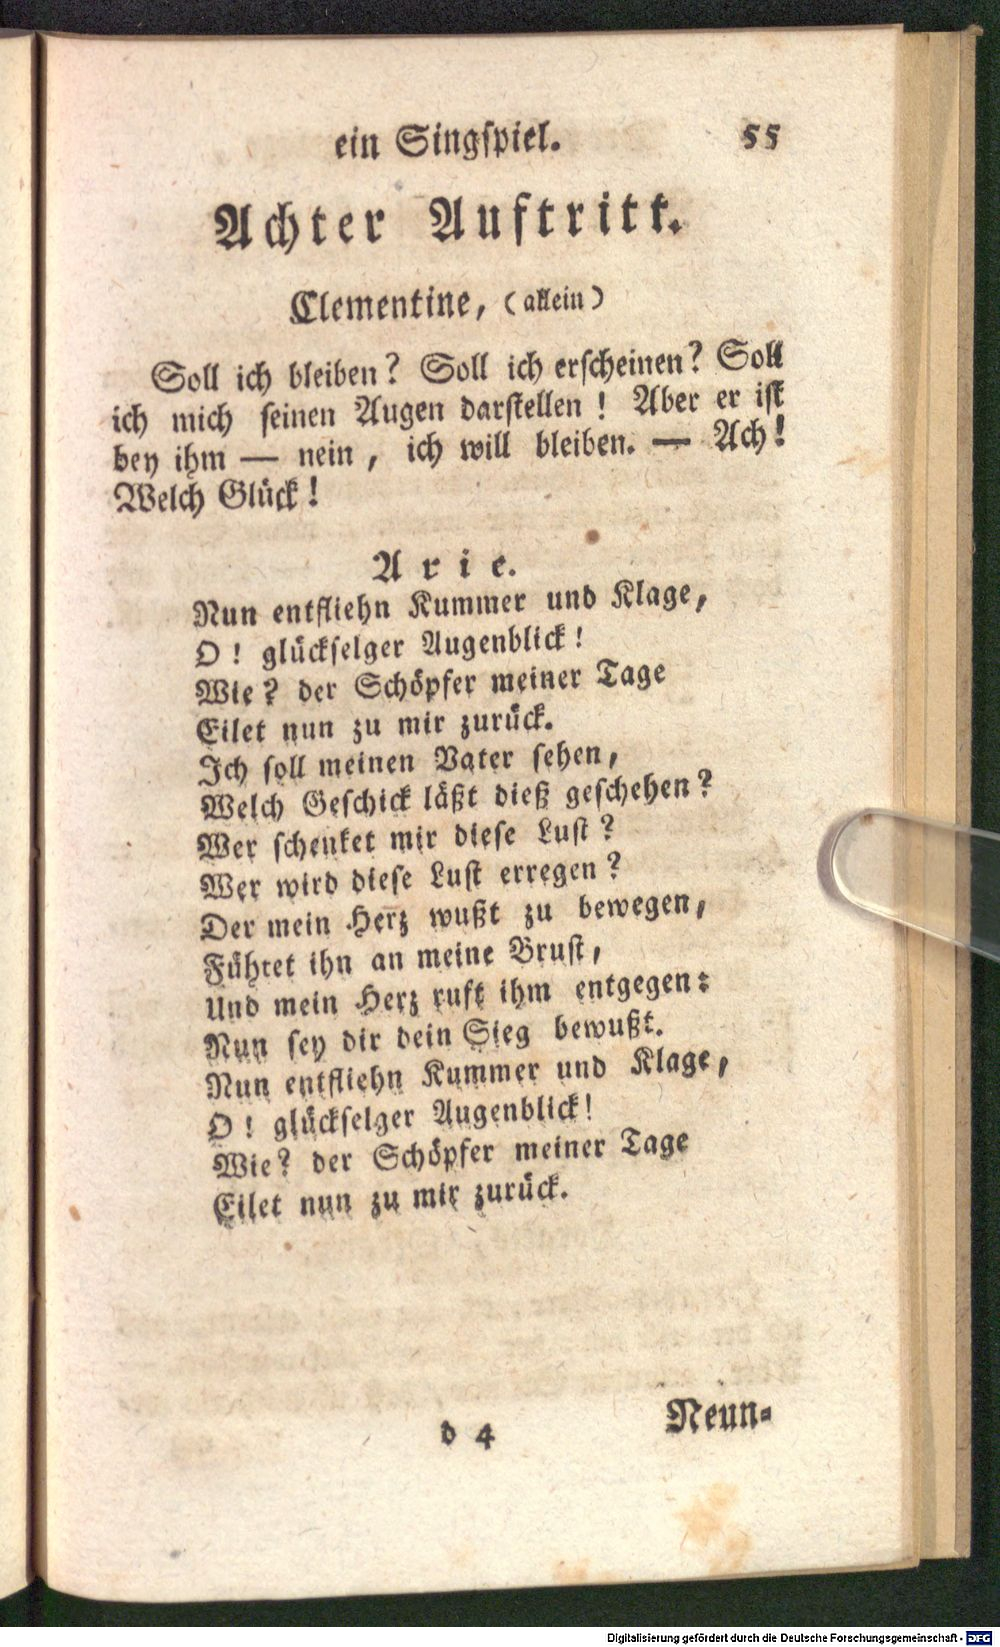 ein Singspiel. 55
Achter Auftritt.
Clementine, (allein)
Soll ich bleiben? Soll ich erscheinen? Soll
ich mich seinen Augen darstellen! Aber er ist
bey ihm — nein, ich will bleiben. — Ach!
Welch Glück!
Arie.
Nun entfliehn Kummer und Klage,
O! glückselger Augenblick!
Wie? der Schöpfer meiner Tage
Eilet nun zu mir zurück.
Ich soll meinen Vater sehen,
Welch Geschick läßt dieß geschehen?
Wer schenket mir diese Lust?
Wer wird diese Lust erregen?
Der mein Herz wußt zu bewegen,
Führet ihn an meine Brust,
Und mein Herz ruft ihm entgegen:
Nun sey dir dein Sieg bewußt.
Nun entfliehn Kummer und Klage,
O! glückselger Augenblick!
Wie? der Schöpfer meiner Tage
Eilet nun zu mir zurück.
d 4 Neun-
Digitalisierung gefördert durch die Deutsche Forschungsgemeinschaft - DFG